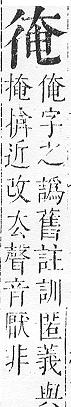 俺
俺字之譌舊註訓匿義與
掩揜近改厺聲音厭非